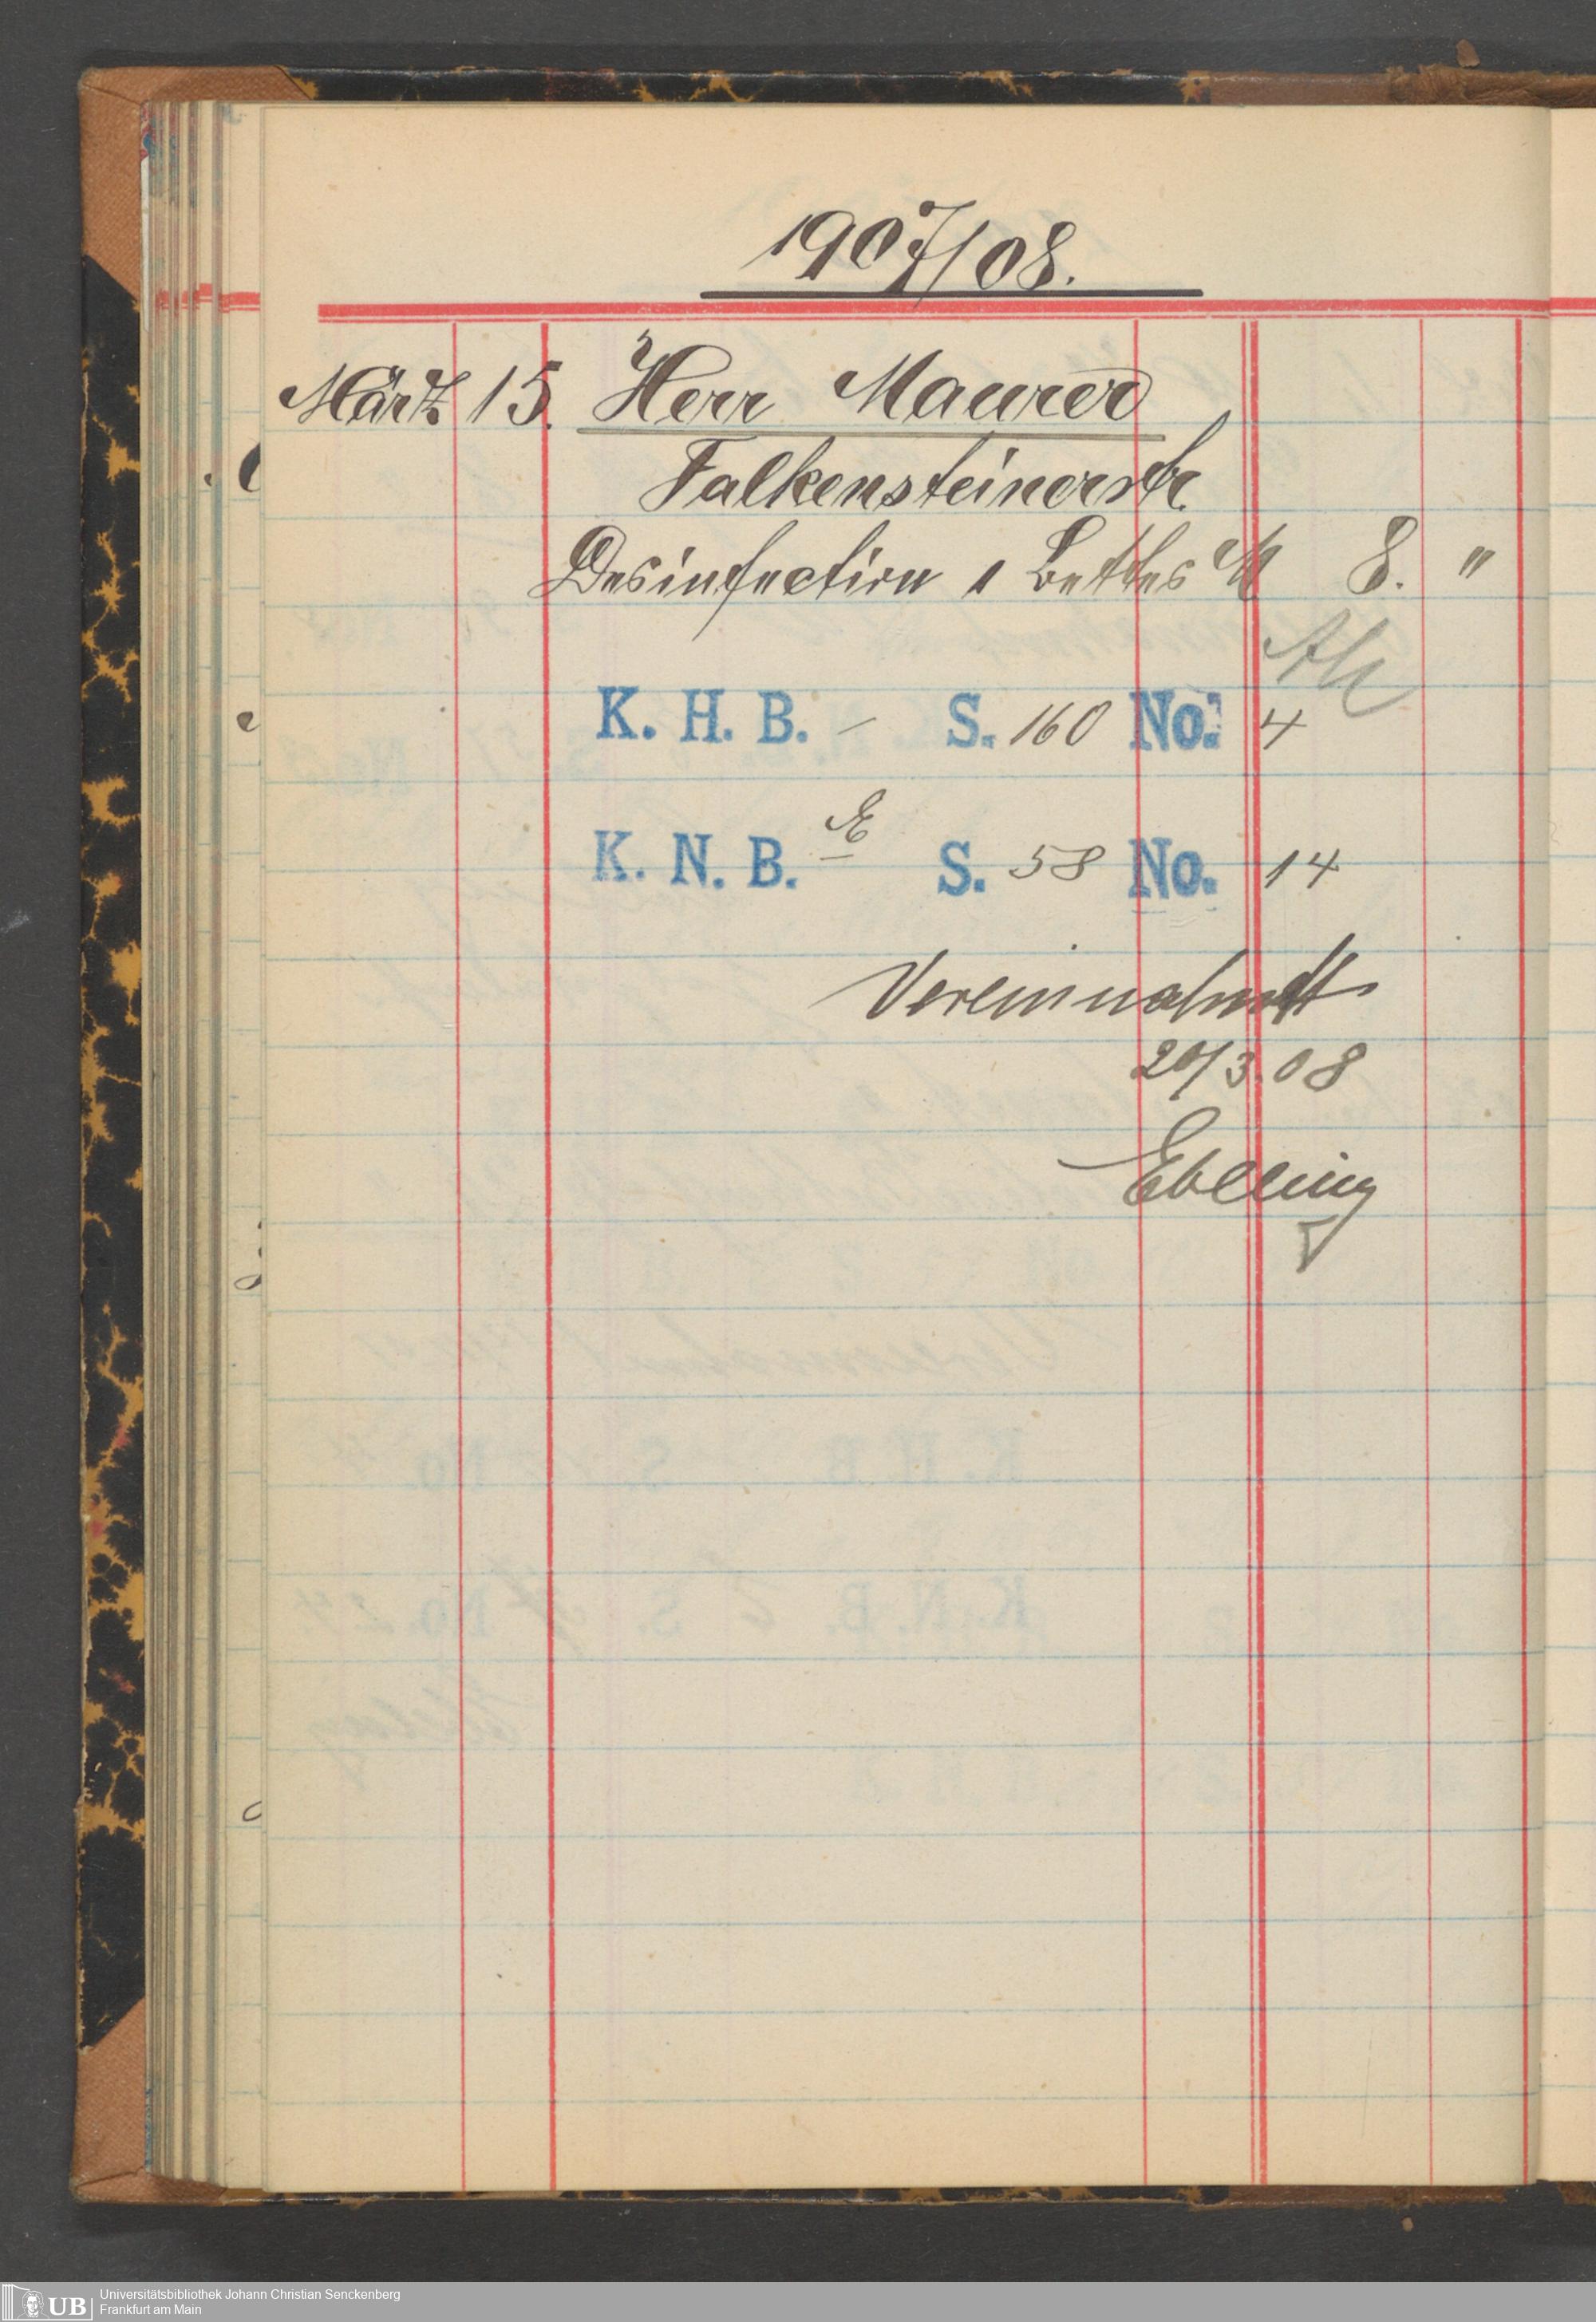 1907/08.
März 15. Herr Maurer
Falkensteinerstr.
Desinfection 1 Bettes M 8. "
K. H. B. - S. 160 No. 4
K. N. B. E S. 58 No. 14
Vereinnahmt
20/3.08
Ebeling
UB Universitätsbibliothek Johann Christian Senckenberg
Frankfurt am Main